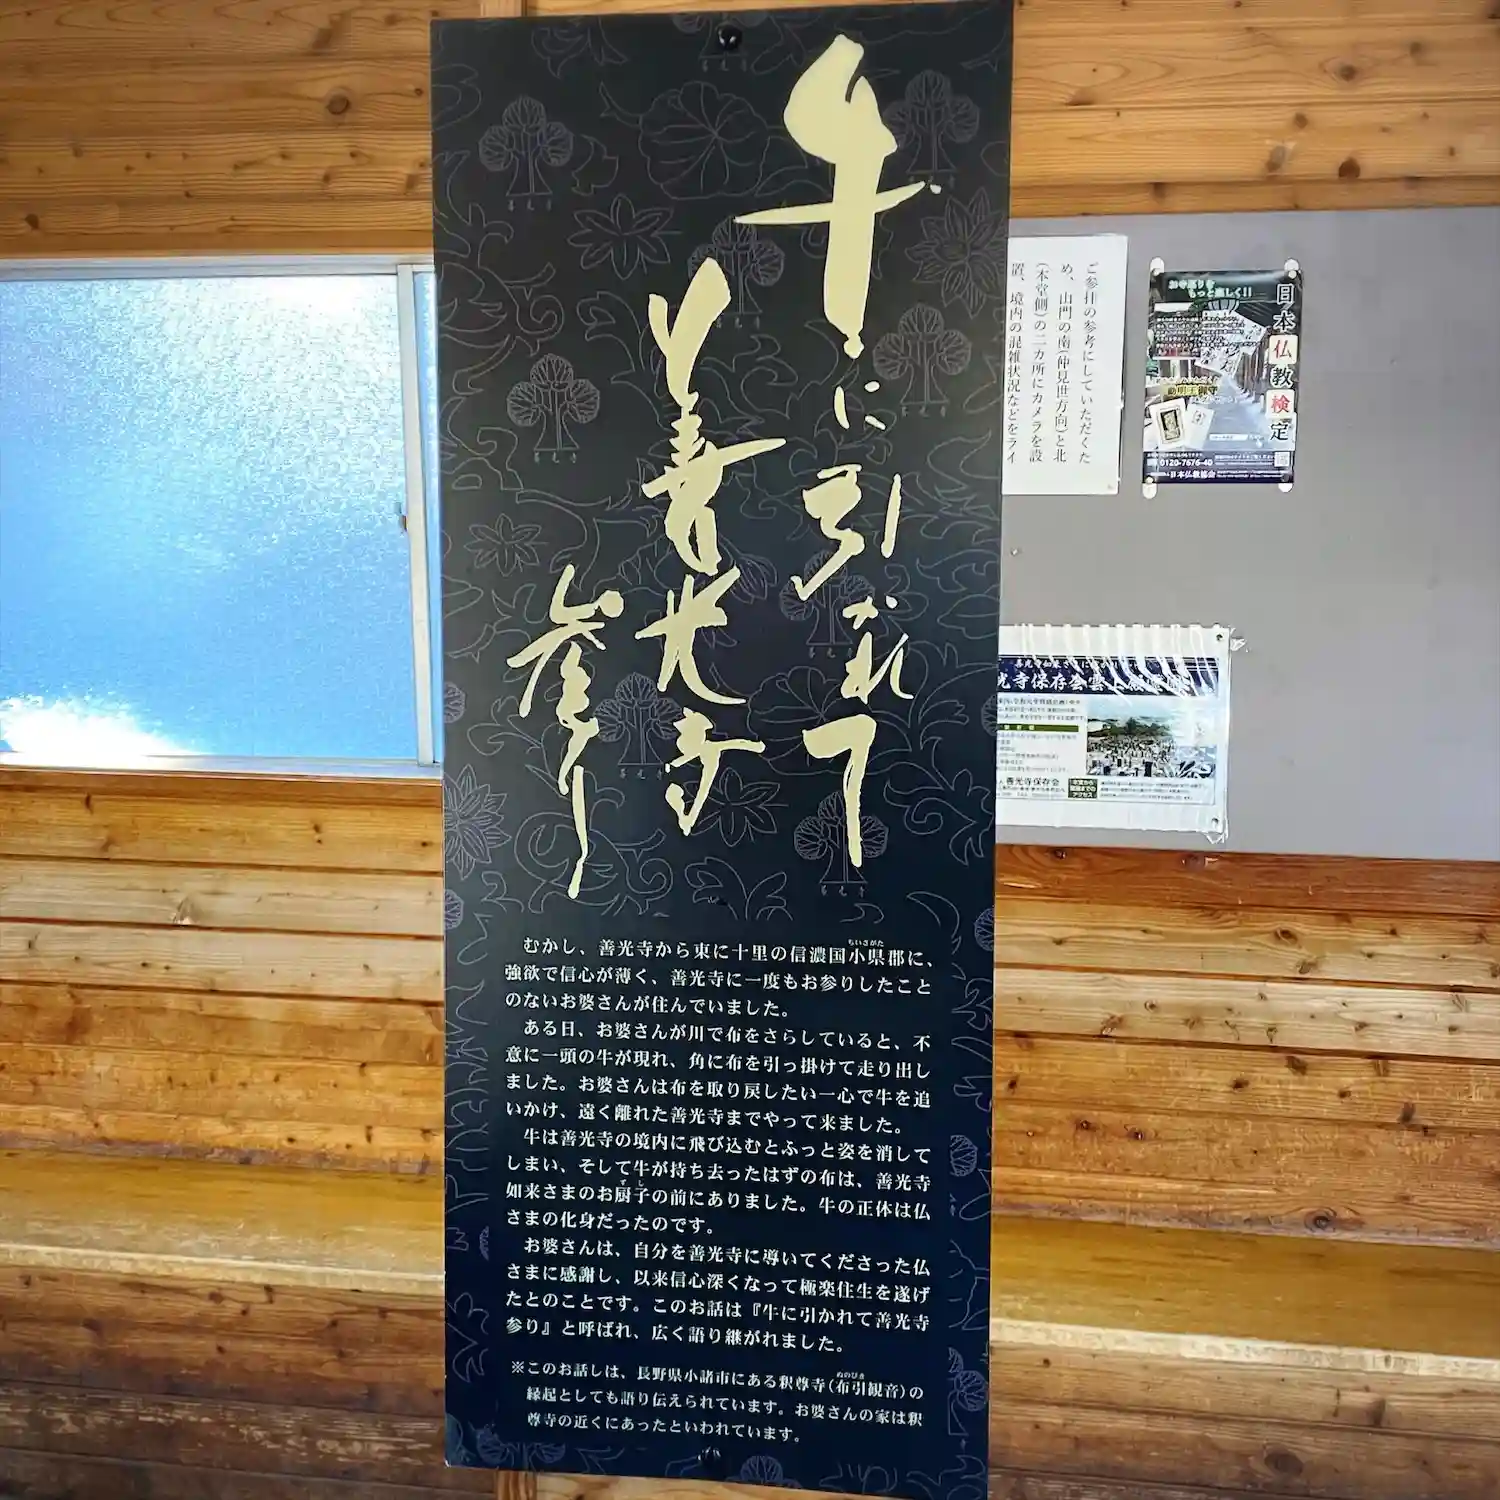 牛に引かれて
善光寺
参り
むかし、善光寺から東に十里の信濃国小県郡に、
ちいさがた
強欲で信心が薄く、善光寺に一度もお参りしたこと
のないお婆さんが住んでいました。
ある日、お婆さんが川で布をさらしていると、不
意に一頭の牛が現れ、角に布を引っ掛けて走り出し
ました。お婆さんは布を取り戻したい一心で牛を追
いかけ、遠く離れた善光寺までやって来ました。
牛は善光寺の境内に飛び込むとふっと姿を消して
しまい、そして牛が持ち去ったはずの布は、善光寺
如来さまのお厨子の前にありました。牛の正体は仏
ずし
さまの化身だったのです。
お婆さんは、自分を善光寺に導いてくださった仏
さまに感謝し、以来信心深くなって極楽往生を遂げ
たとのことです。このお話は『牛に引かれて善光寺
参り』と呼ばれ、広く語り継がれました。
※このお話しは、長野県小諸市にある釈尊寺(布引観音)の
ぬのびき
縁起としても語り伝えられています。お婆さんの家は釈
尊寺の近くにあったといわれています。
ご参拝の参考にしていただくた
め、山門の南(仲見世方向)と北
(本堂側)の二カ所にカメラを設
置、境内の混雑状況などをライ
お寺巡りを
もっと楽しく!!
日本仏教検定
0120-7676-40
日本仏教協会
光寺保存会
善光寺保存会
アクセス